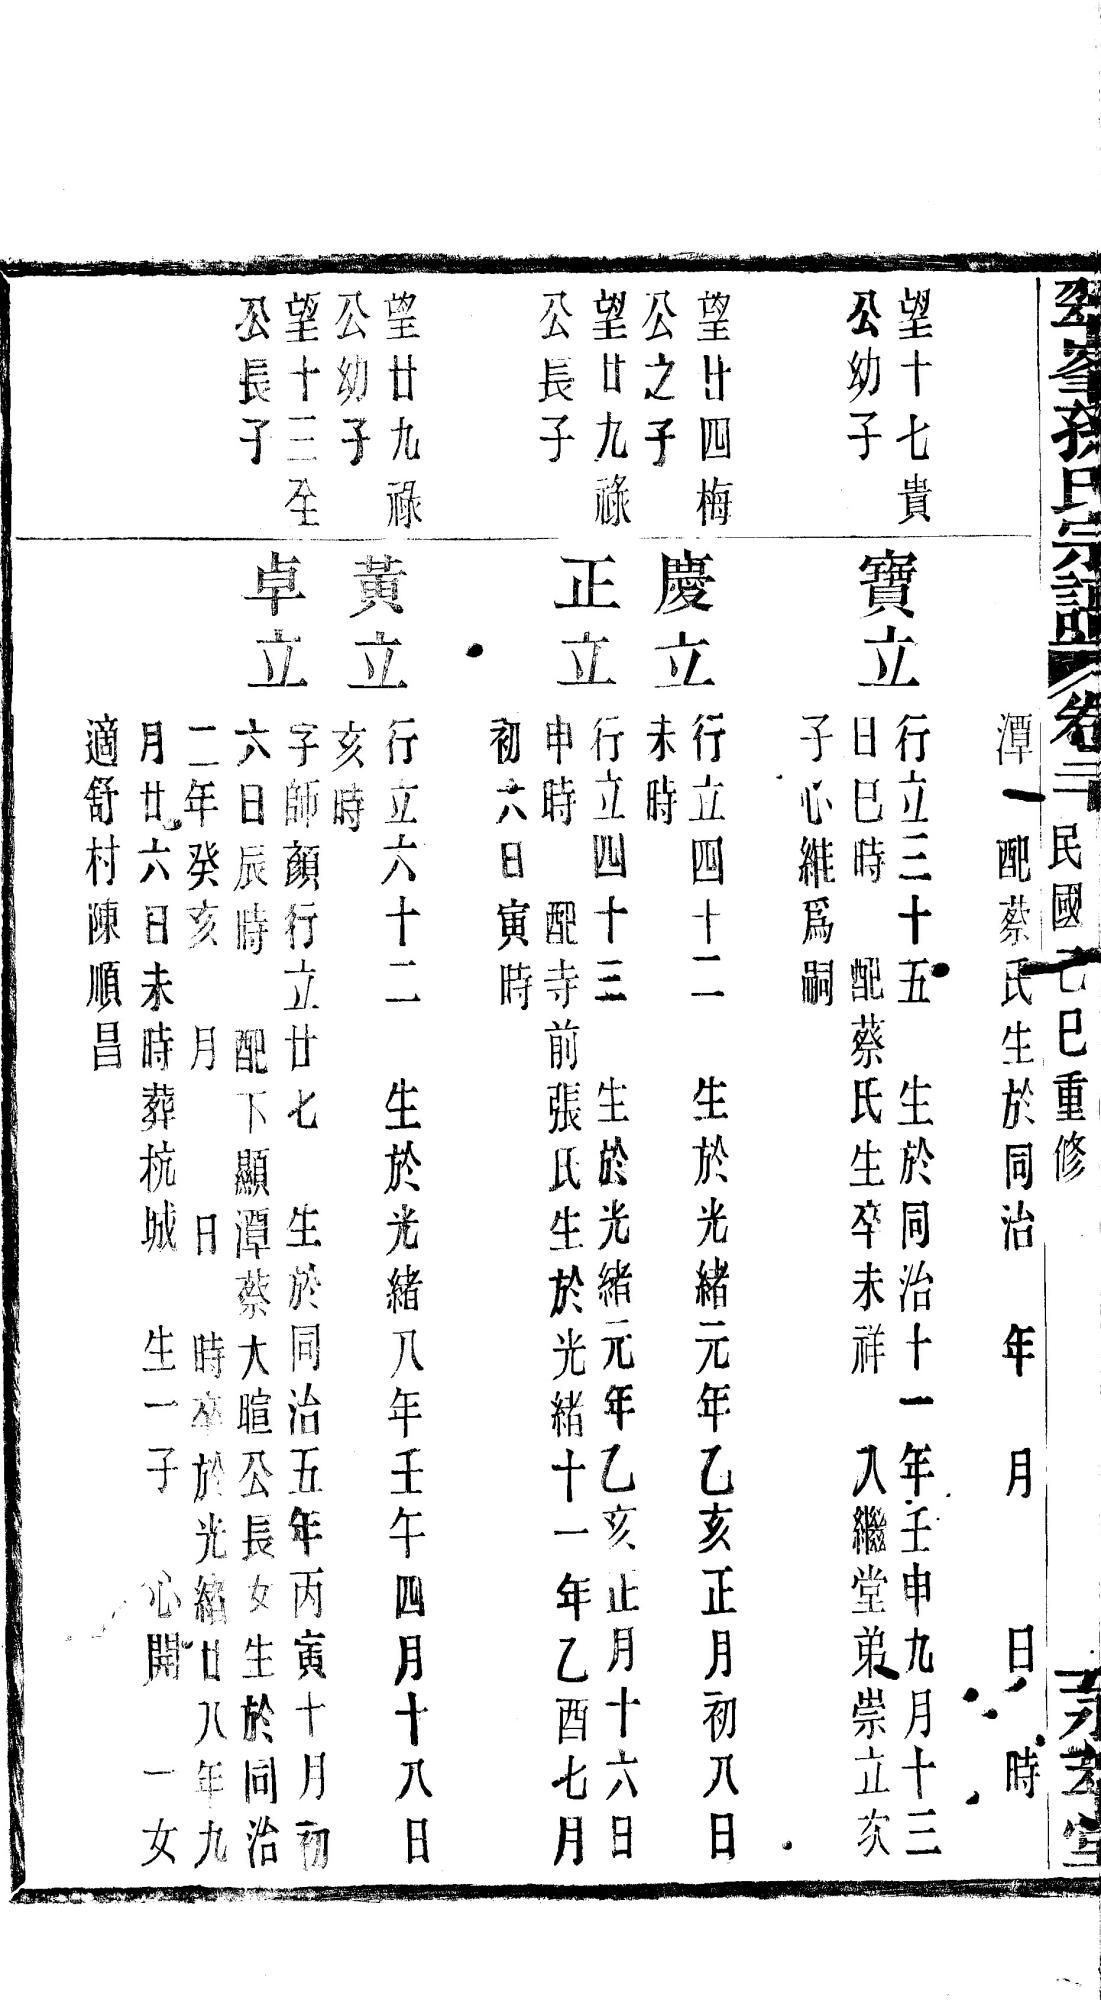 孫氏宗譜 卷三 民國己巳重修
潭 配蔡氏生於同治 年 月 日 時
望十七貴
公幼子
寶立
行立三十五 生於同治十一年壬申九月十三
日巳時 配蔡氏生卒未祥 入繼堂弟崇立次
子心維爲嗣
望廿四梅
公之子
慶立
行立四十二 生於光緒元年乙亥正月初八日
未時
望廿九祿
公長子
正立
行立四十三 生於光緒元年乙亥正月十六日
申時 配寺前張氏生於光緒十一年乙酉七月
初六日寅時
望廿九祿
公幼子
黃立
行立六十二 生於光緒八年壬午四月十八日
亥時
望十三全
公長子
卓立
字師顏行立廿七 生於同治五年丙寅十月初
六日辰時 配下顯潭蔡大暄公長女生於同治
二年癸亥 月 日 時卒於光緒廿八年九
月廿六日未時葬杭城 生一子 心開 一女
適舒村陳順昌